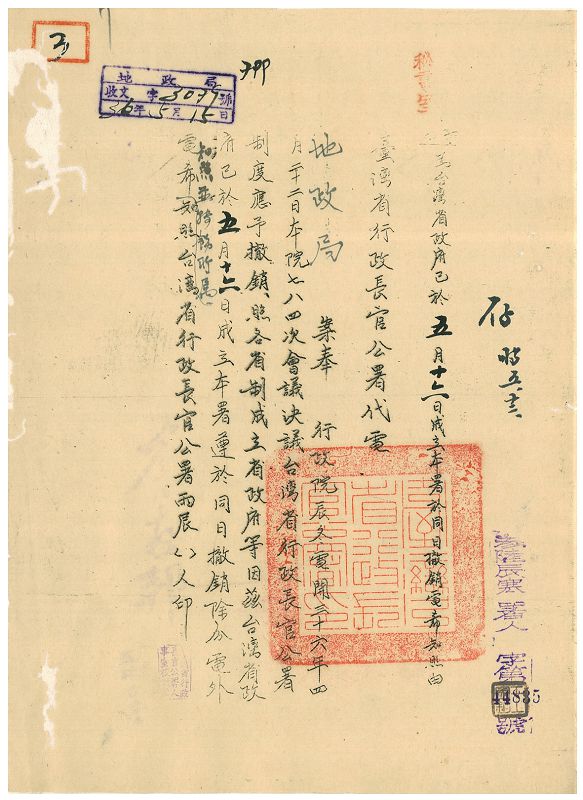 存
為台灣省政府已於五月十六日成立本署於同日撤銷電希知照由
臺灣省行政長官公署代電
地政局 案奉 行政院辰冬電開三十六年四
月二十二日本院七八四次會議決議台灣省行政長官公署
制度應予撤銷照各省制成立省政府等因茲台灣省政
府已於五月十六日成立本署遵於同日撤銷除分電外
電希知照台灣省行政長官公署
知照並轉飭所屬
地政局
收文 字 3079 號
36年5月15日
署人字第44835號